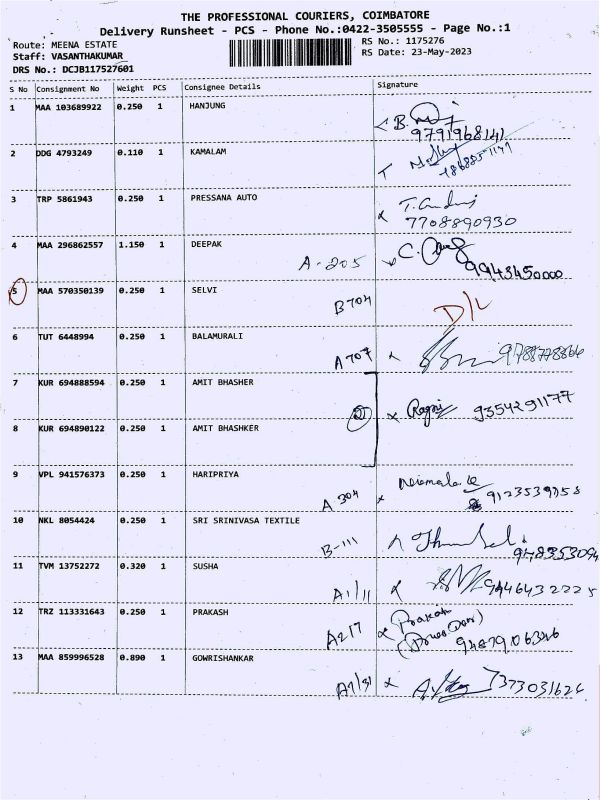 THE PROFESSIONAL COURIERS, COIMBATORE
Delivery Runsheet - PCS - Phone No.:0422-3505555 - Page No.:1
Route: MEENA ESTATE RS No.: 1175276
Staff: VASANTHAKUMAR RS Date: 23-May-2023
DRS No.: DCJB117527601
S No Consignment No Weight PCS Consignee Details Signature
1 MAA 103689922 0.250 1 HANJUNG
9791968141
2 DDG 4793249 0.110 1 KAMALAM
3 TRP 5861943 0.250 1 PRESSANA AUTO
7708890930
4 MAA 296862557 1.150 1 DEEPAK A-205
9943450000
5 MAA 570350139 0.250 1 SELVI B704 D/L
6 TUT 6448994 0.250 1 BALAMURALI A707 9788778866
7 KUR 694888594 0.250 1 AMIT BHASHER
9354291177
8 KUR 694890122 0.250 1 AMIT BHASHKER
9 VPL 941576373 0.250 1 HARIPRIYA A 304
10 NKL 8054424 0.250 1 SRI SRINIVASA TEXTILE B-111
11 TVM 13752272 0.320 1 SUSHA A1/11 9446432225
12 TRZ 113331643 0.250 1 PRAKASH A217 Prakash
9487906346
13 MAA 859996528 0.890 1 GOWRISHANKAR 7373031624